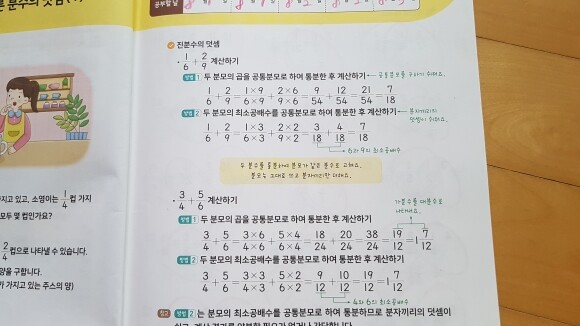 분수의 덧셈
공부할 날
진분수의 덧셈
· 1/6 + 2/9 계산하기
방법 1 두 분모의 곱을 공통분모로 하여 통분한 후 계산하기 ← 공통분모를 구하기 쉬워요.
1/6 + 2/9 = 1×9/6×9 + 2×6/9×6 = 9/54 + 12/54 = 21/54 = 7/18
방법 2 두 분모의 최소공배수를 공통분모로 하여 통분한 후 계산하기 ← 분자끼리의 덧셈이 쉬워요.
1/6 + 2/9 = 1×3/6×3 + 2×2/9×2 = 3/18 + 4/18 = 7/18
6과 9의 최소공배수
두 분수를 통분하여 분모가 같은 분수로 고쳐요.
분모는 그대로 쓰고 분자끼리만 더해요.
· 3/4 + 5/6 계산하기
가분수를 대분수로 나타내요.
방법 1 두 분모의 곱을 공통분모로 하여 통분한 후 계산하기
3/4 + 5/6 = 3×6/4×6 + 5×4/6×4 = 18/24 + 20/24 = 38/24 = 19/12 = 1 7/12
방법 2 두 분모의 최소공배수를 공통분모로 하여 통분한 후 계산하기
3/4 + 5/6 = 3×3/4×3 + 5×2/6×2 = 9/12 + 10/12 = 19/12 = 1 7/12
4와 6의 최소공배수
참고 방법 2 는 분모의 최소공배수를 공통분모로 하여 통분하므로 분자끼리의 덧셈이
가지고 있고, 소영이는 1/4컵 가지
모두 몇 컵인가요?
2/4컵으로 나타낼 수 있습니다.
양을 구합니다.
가 가지고 있는 주스의 양)